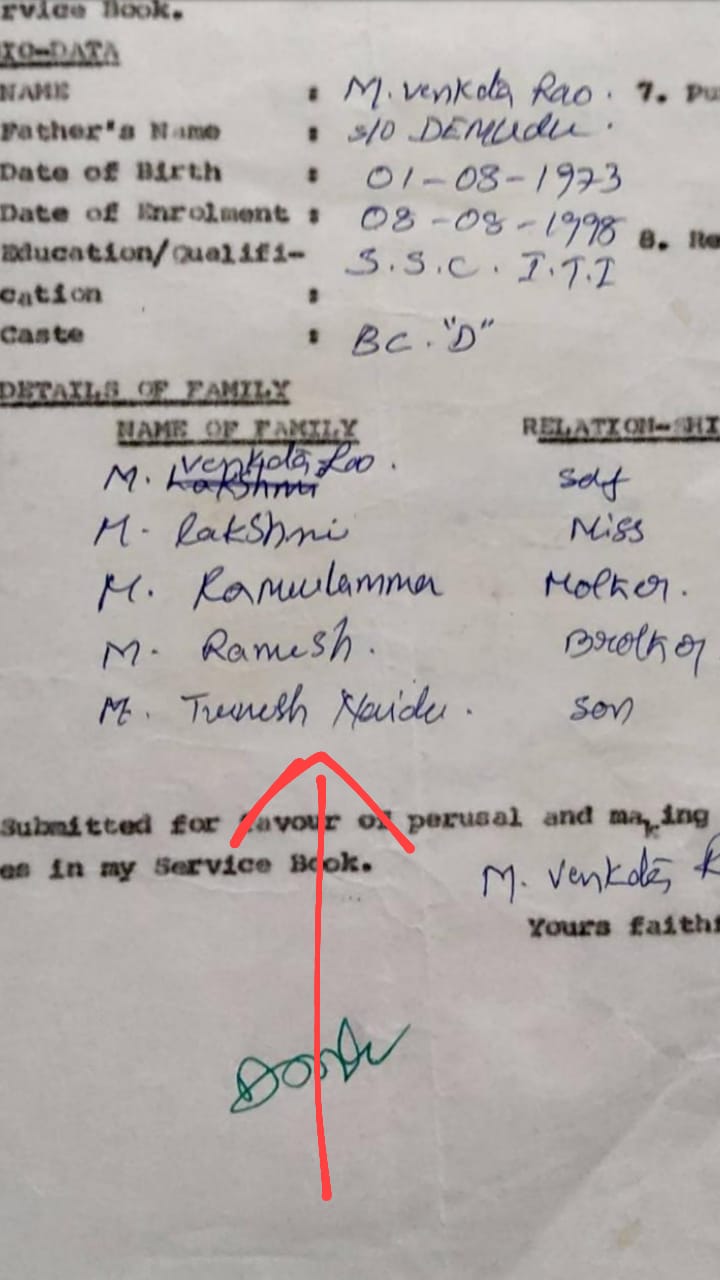 rvice Book.
IO-DATA
NAME : M. Venkata Rao. 7. Pu
Father's Name : S/O DEMUDU.
Date of Birth : 01-08-1973
Date of Enrolment : 08-08-1998 8. Re
Education/Qualifi- S.S.C. I.T.I
cation :
Caste : BC. "D"
DETAILS OF FAMILY
NAME OF FAMILY RELATION-SHI
M. Venkata Rao. Self
M. Lakshmi Miss
M. Ramulamma Mother.
M. Ramesh. Brother
M. Naidu. Son
Submitted for favour of perusal and making
es in my Service Book.
M. Venkata R
Yours faith